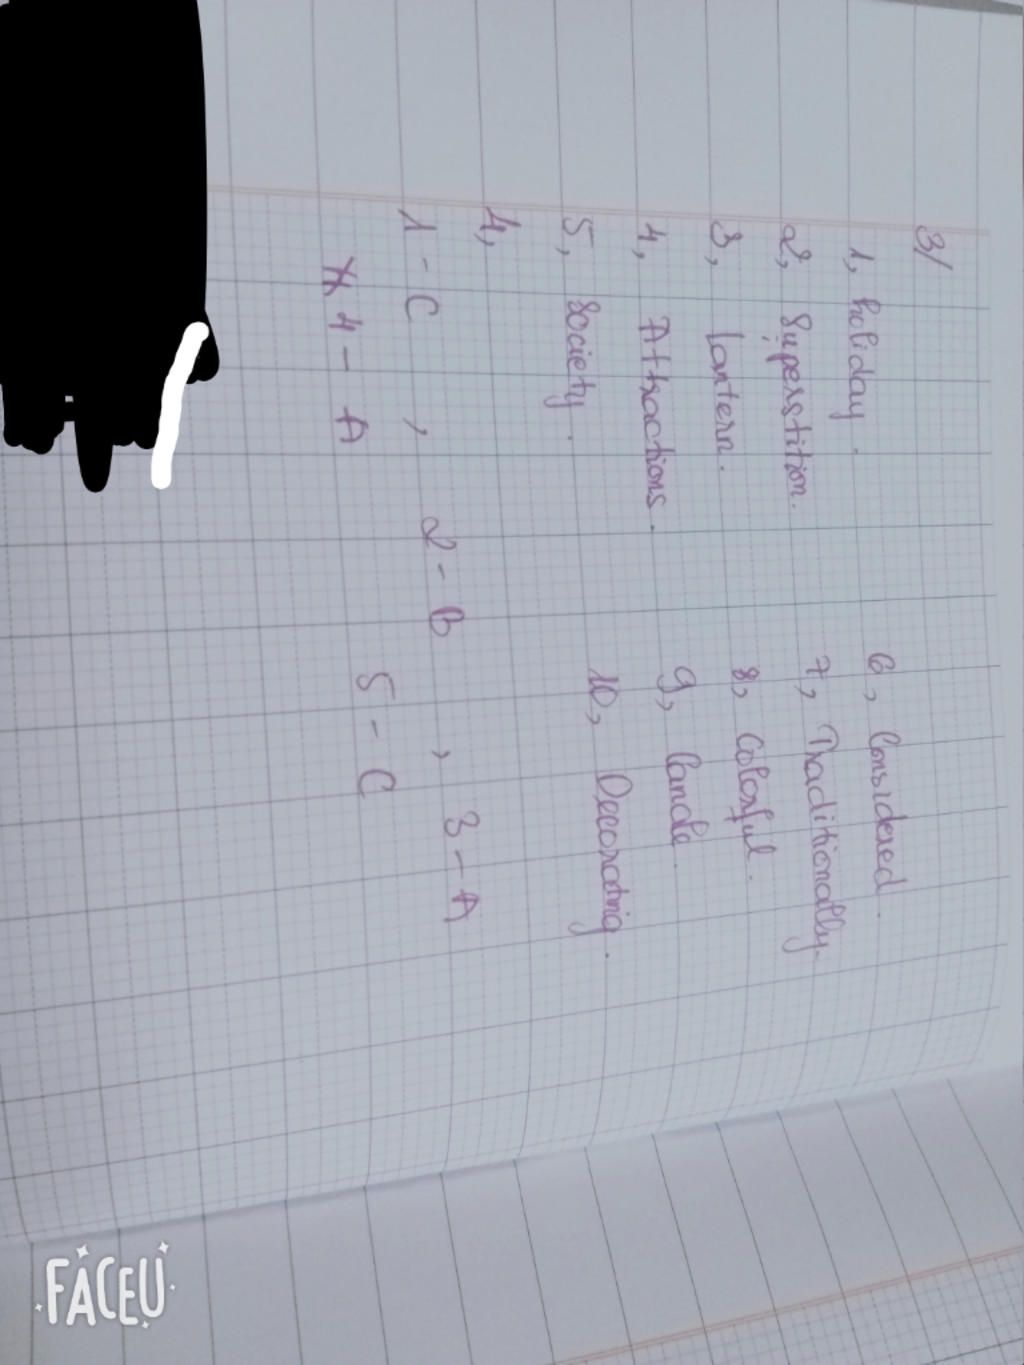 3/
1, holiday. 6, Considered.
2, Superstition. 7, Traditionally.
3, lantern. 8, Colorful.
4, Attractions. 9, Cande.
5, Society. 10, Decorating.
4,
1 - C , 2 - B , 3 - A
4 - A 5 - C
FACEU